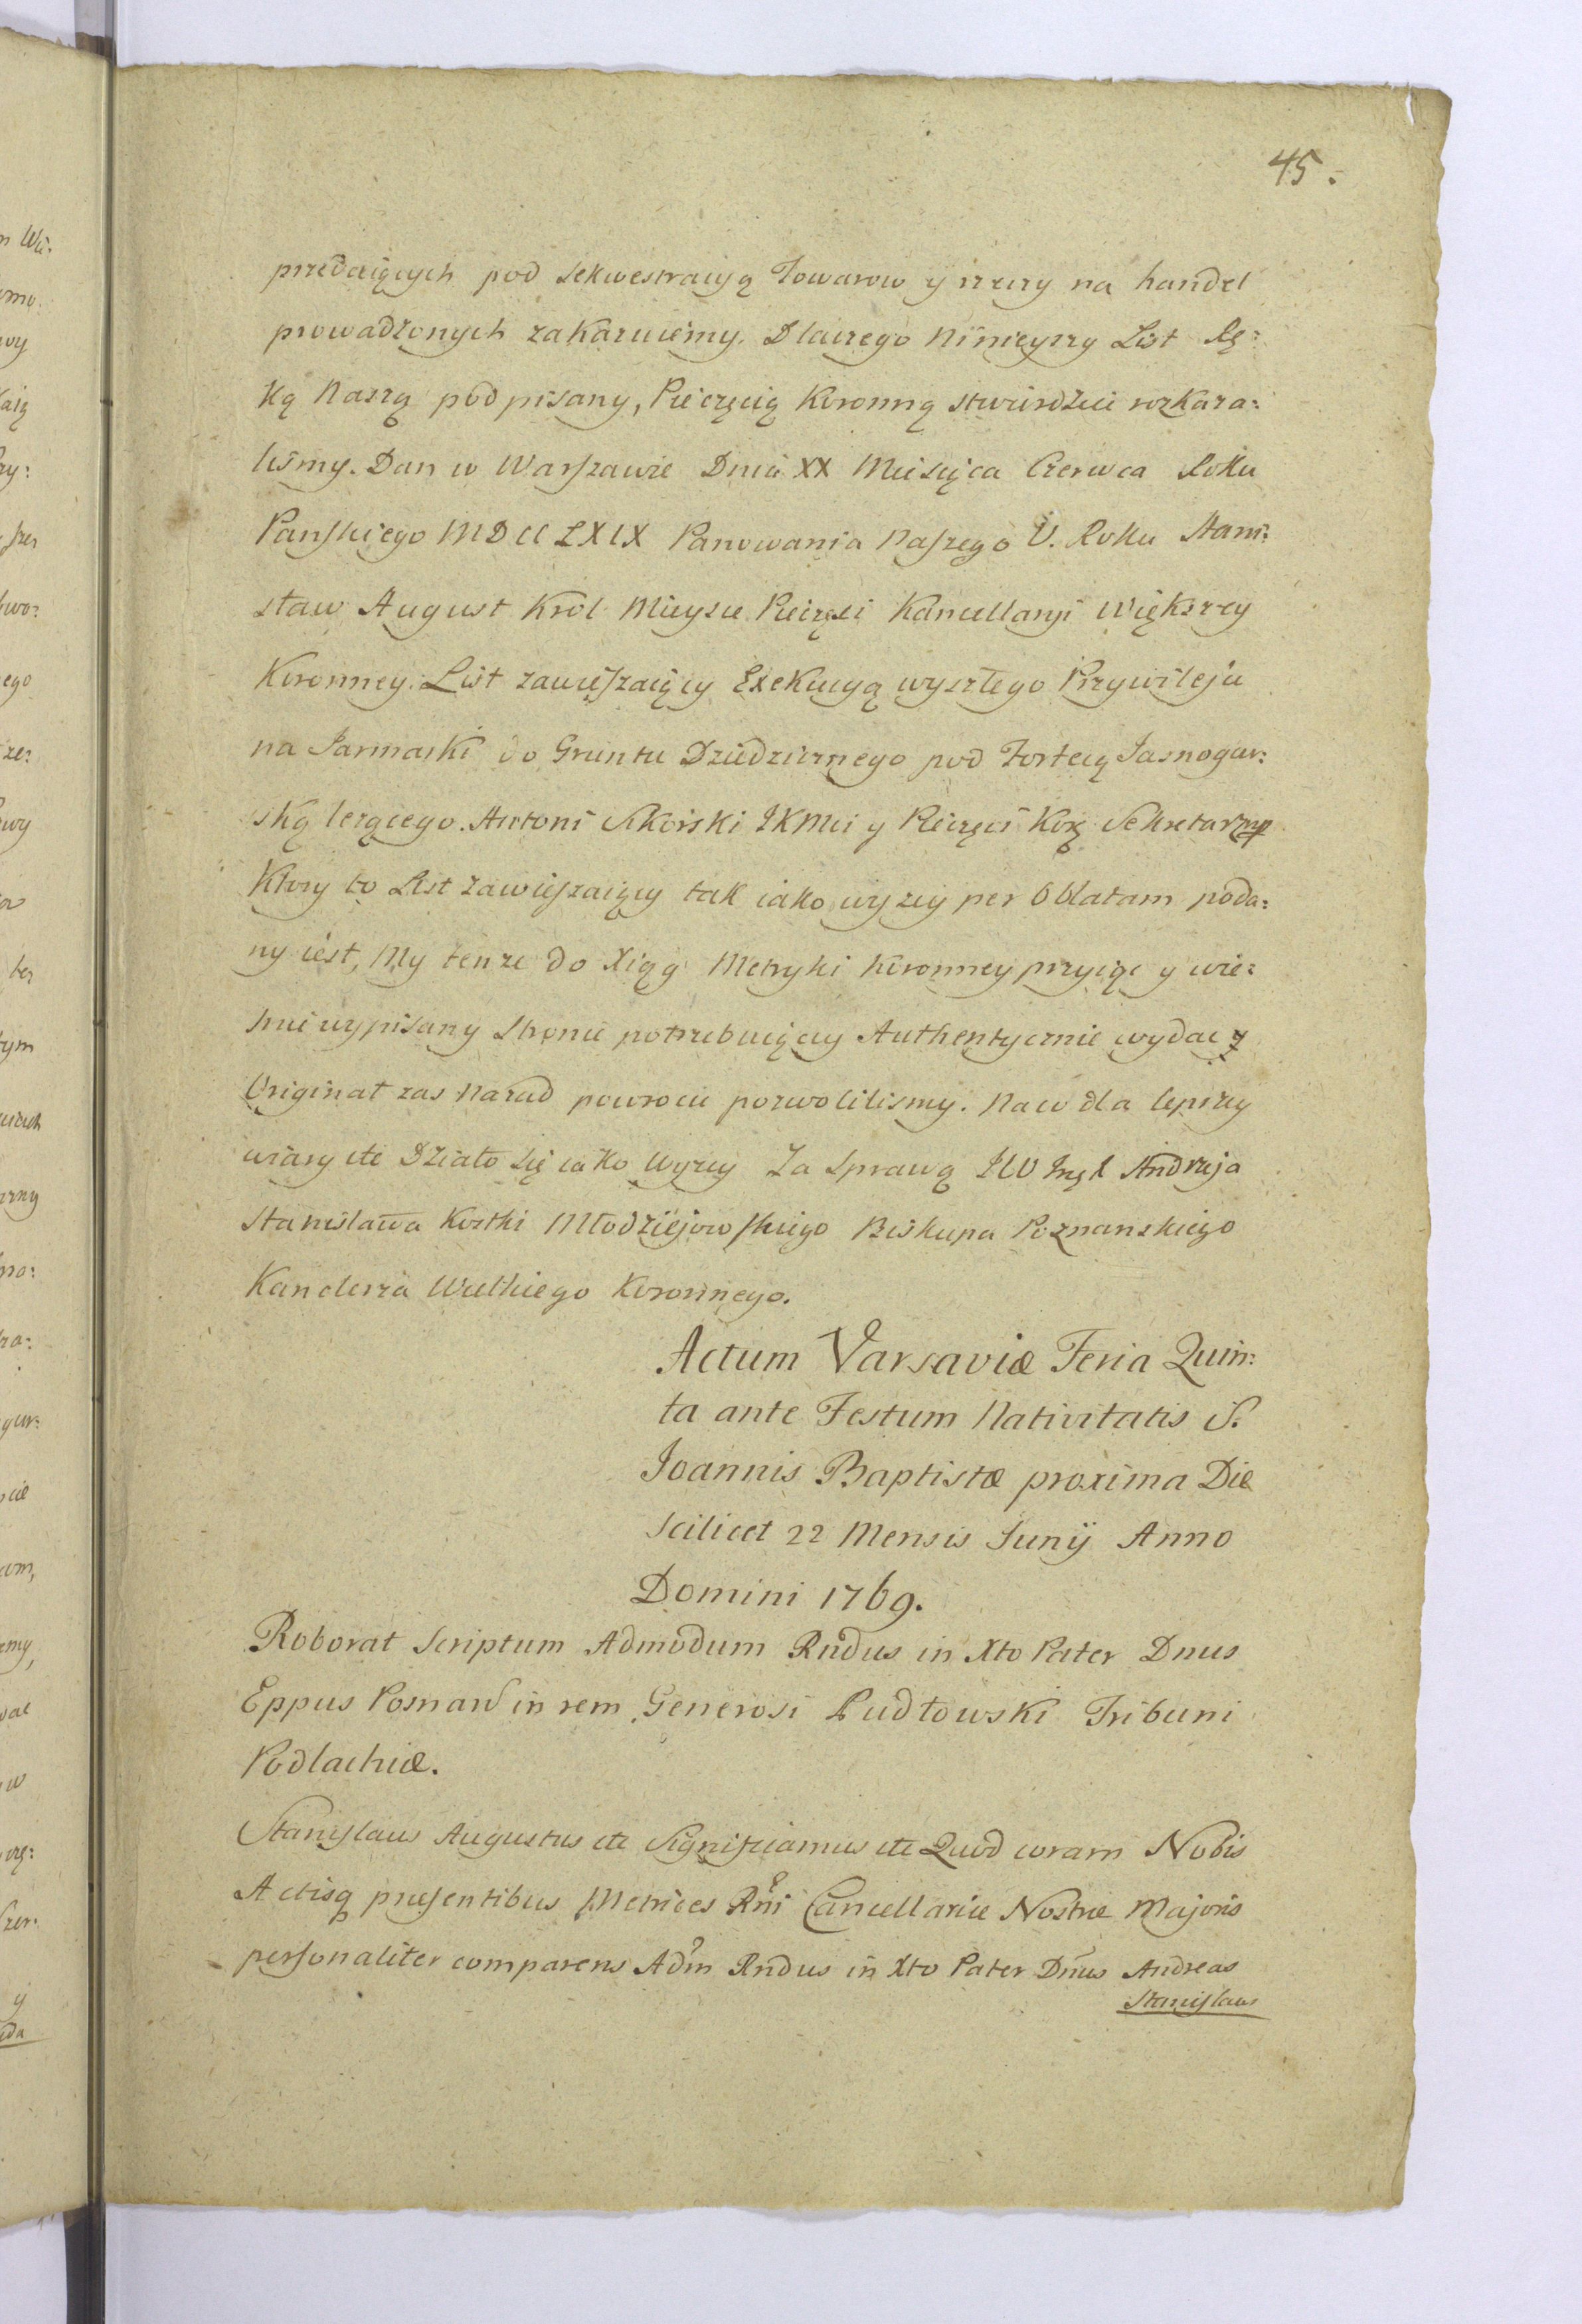 45.
przedaiących pod Sekwestracyą Towarow y rzeczy na handel
prowadzonych zakazuiemy. Dlaczego Ninieyszy List Rę:
ką Naszą podpisany, Pieczęcią Koronną stwierdzić rozkaza:
liśmy. Dan w Warszawie Dnia XX Miesiąca Czerwca Roku
Panskiego MDCCLXIX Panowania Naszego V. Roku Stani:
sław August Król Mieysce Pieczęci Kancellaryi Większey
Koronney. List zawieszaiący Exekucyą wyszłego Przywileju
na Jarmarki do Gruntu Dziedzicznego pod Fortecą Jasnogur:
ską leząцego. Antoni Sikorski JKMci y Pieczęci Korẹ Sekretarz mp
Ktory to List zawieszaiący tak iako wyzey per Oblatam poda:
ny iest, My tenze do Xiąg Metryki Koronney przyiąc y wie:
rnie wypisany Stronie potrzebuiącey Authentycznie wydac y
Originał zas Nazad powrocic pozwolilismy. Na co dla lepszey
wiary etc Działo się iako wyzey Za Sprawą JW Xsę X Andrzeja
Stanisława Kostki Młodziejowskiego Biskupa Poznanskiego
Kanclerza Wielkiego Koronnego.
Actum Varsaviæ Feria Quin:
ta ante Festum Nativitatis S.
Joannis Baptistæ proxima Die
scilicet 22 Mensis Junij Anno
Domini 1769.
Roborat Scriptum Admodum Rndus in Xto Pater Dnus
Eppus Posnan in rem Generosi Pudłowski Tribuni
Podlachiæ.
Stanislaus Augustus etc Significamus etc Quod coram Nobis
Actisq præsentibus Metrices Rni Cancellariæ Nostræ Majoris
personaliter comparens Adm Rndus in Xto Pater Dnus Andreas
Stanislaus